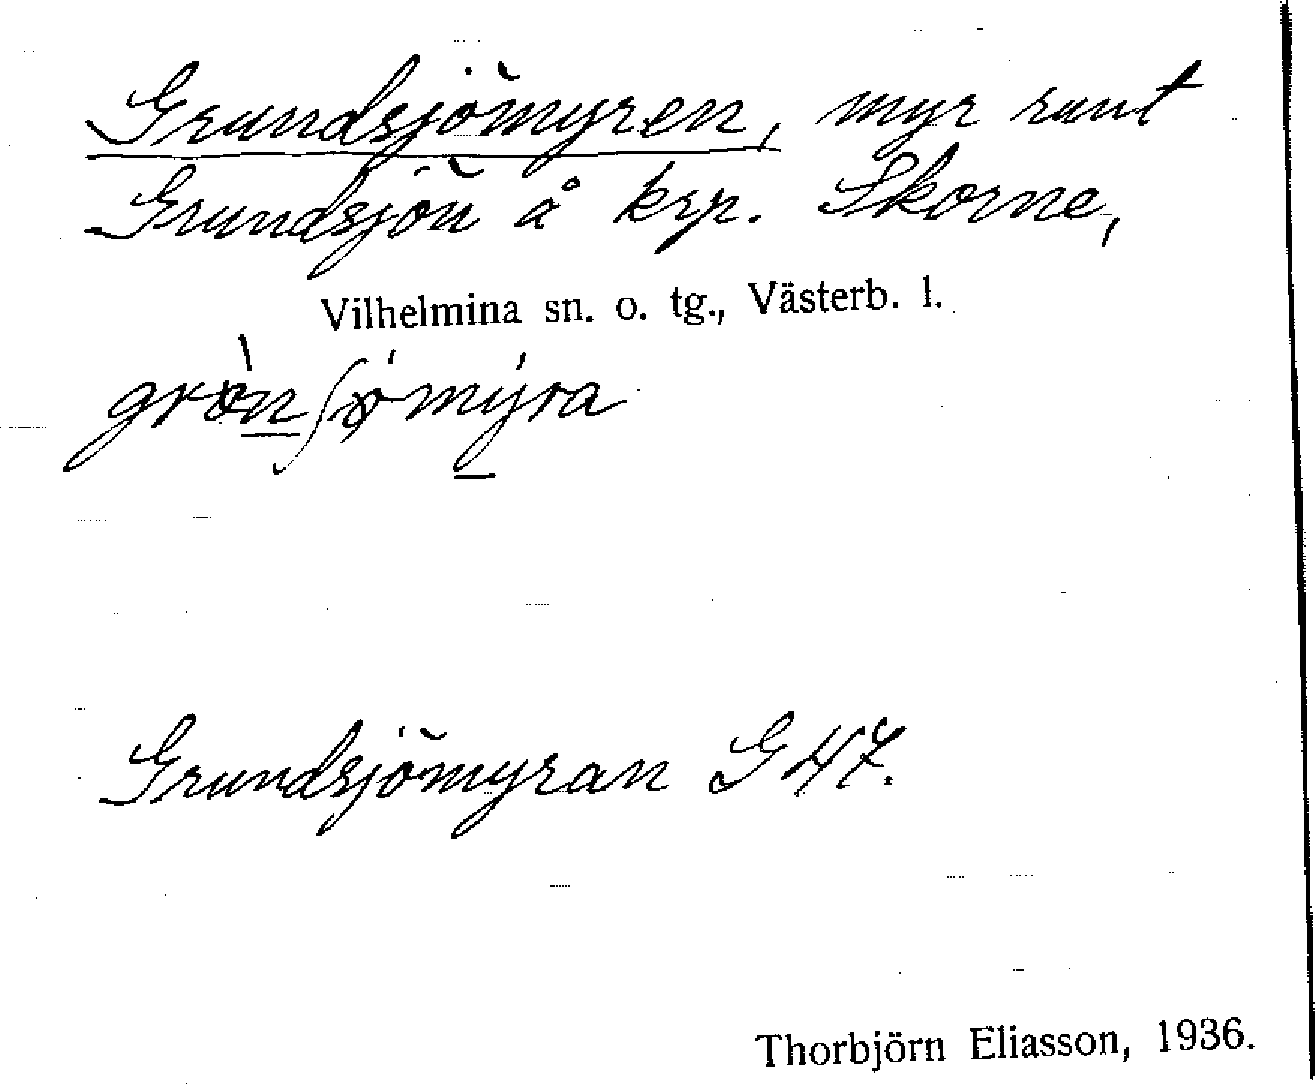 Grundsjömyren, myr runt
Grundsjön å krp. Skorne,
Vilhelmina sn. o. tg., Västerb. l.
grònʃø̀mýra
Grundsjömyran G 47.
Thorbjörn Eliasson, 1936.